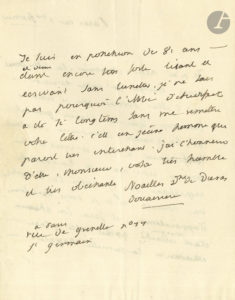 ADER
Je suis en possession de 82 ans
et vieux
étant encore très forte lisant et
écrivant sans lunettes. je ne sais
pas pourquoi l'abbé
a été si longtems sans me remettre
votre lettre. c'est un jeune homme qui
paroit très interessant. j'ai l'honneur
d'être, Monsieur, votre très humble
et très obéissante Noailles de Duras
Douairiere
à Paris
rue de grenelle n°
st germain